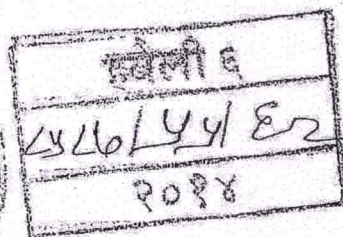 हवेली ६
८५८७/५५/६२
२०१४